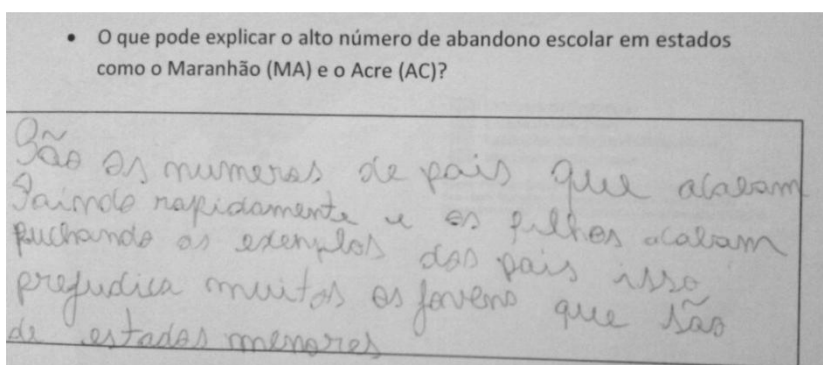 • O que pode explicar o alto número de abandono escolar em estados
como o Maranhão (MA) e o Acre (AC)?
São os numeros de pais que acabam
Saindo rapidamente e os filhos acabam
puchando os exemplos dos pais isso
prejudica muitos os jovens que são
de estados menores